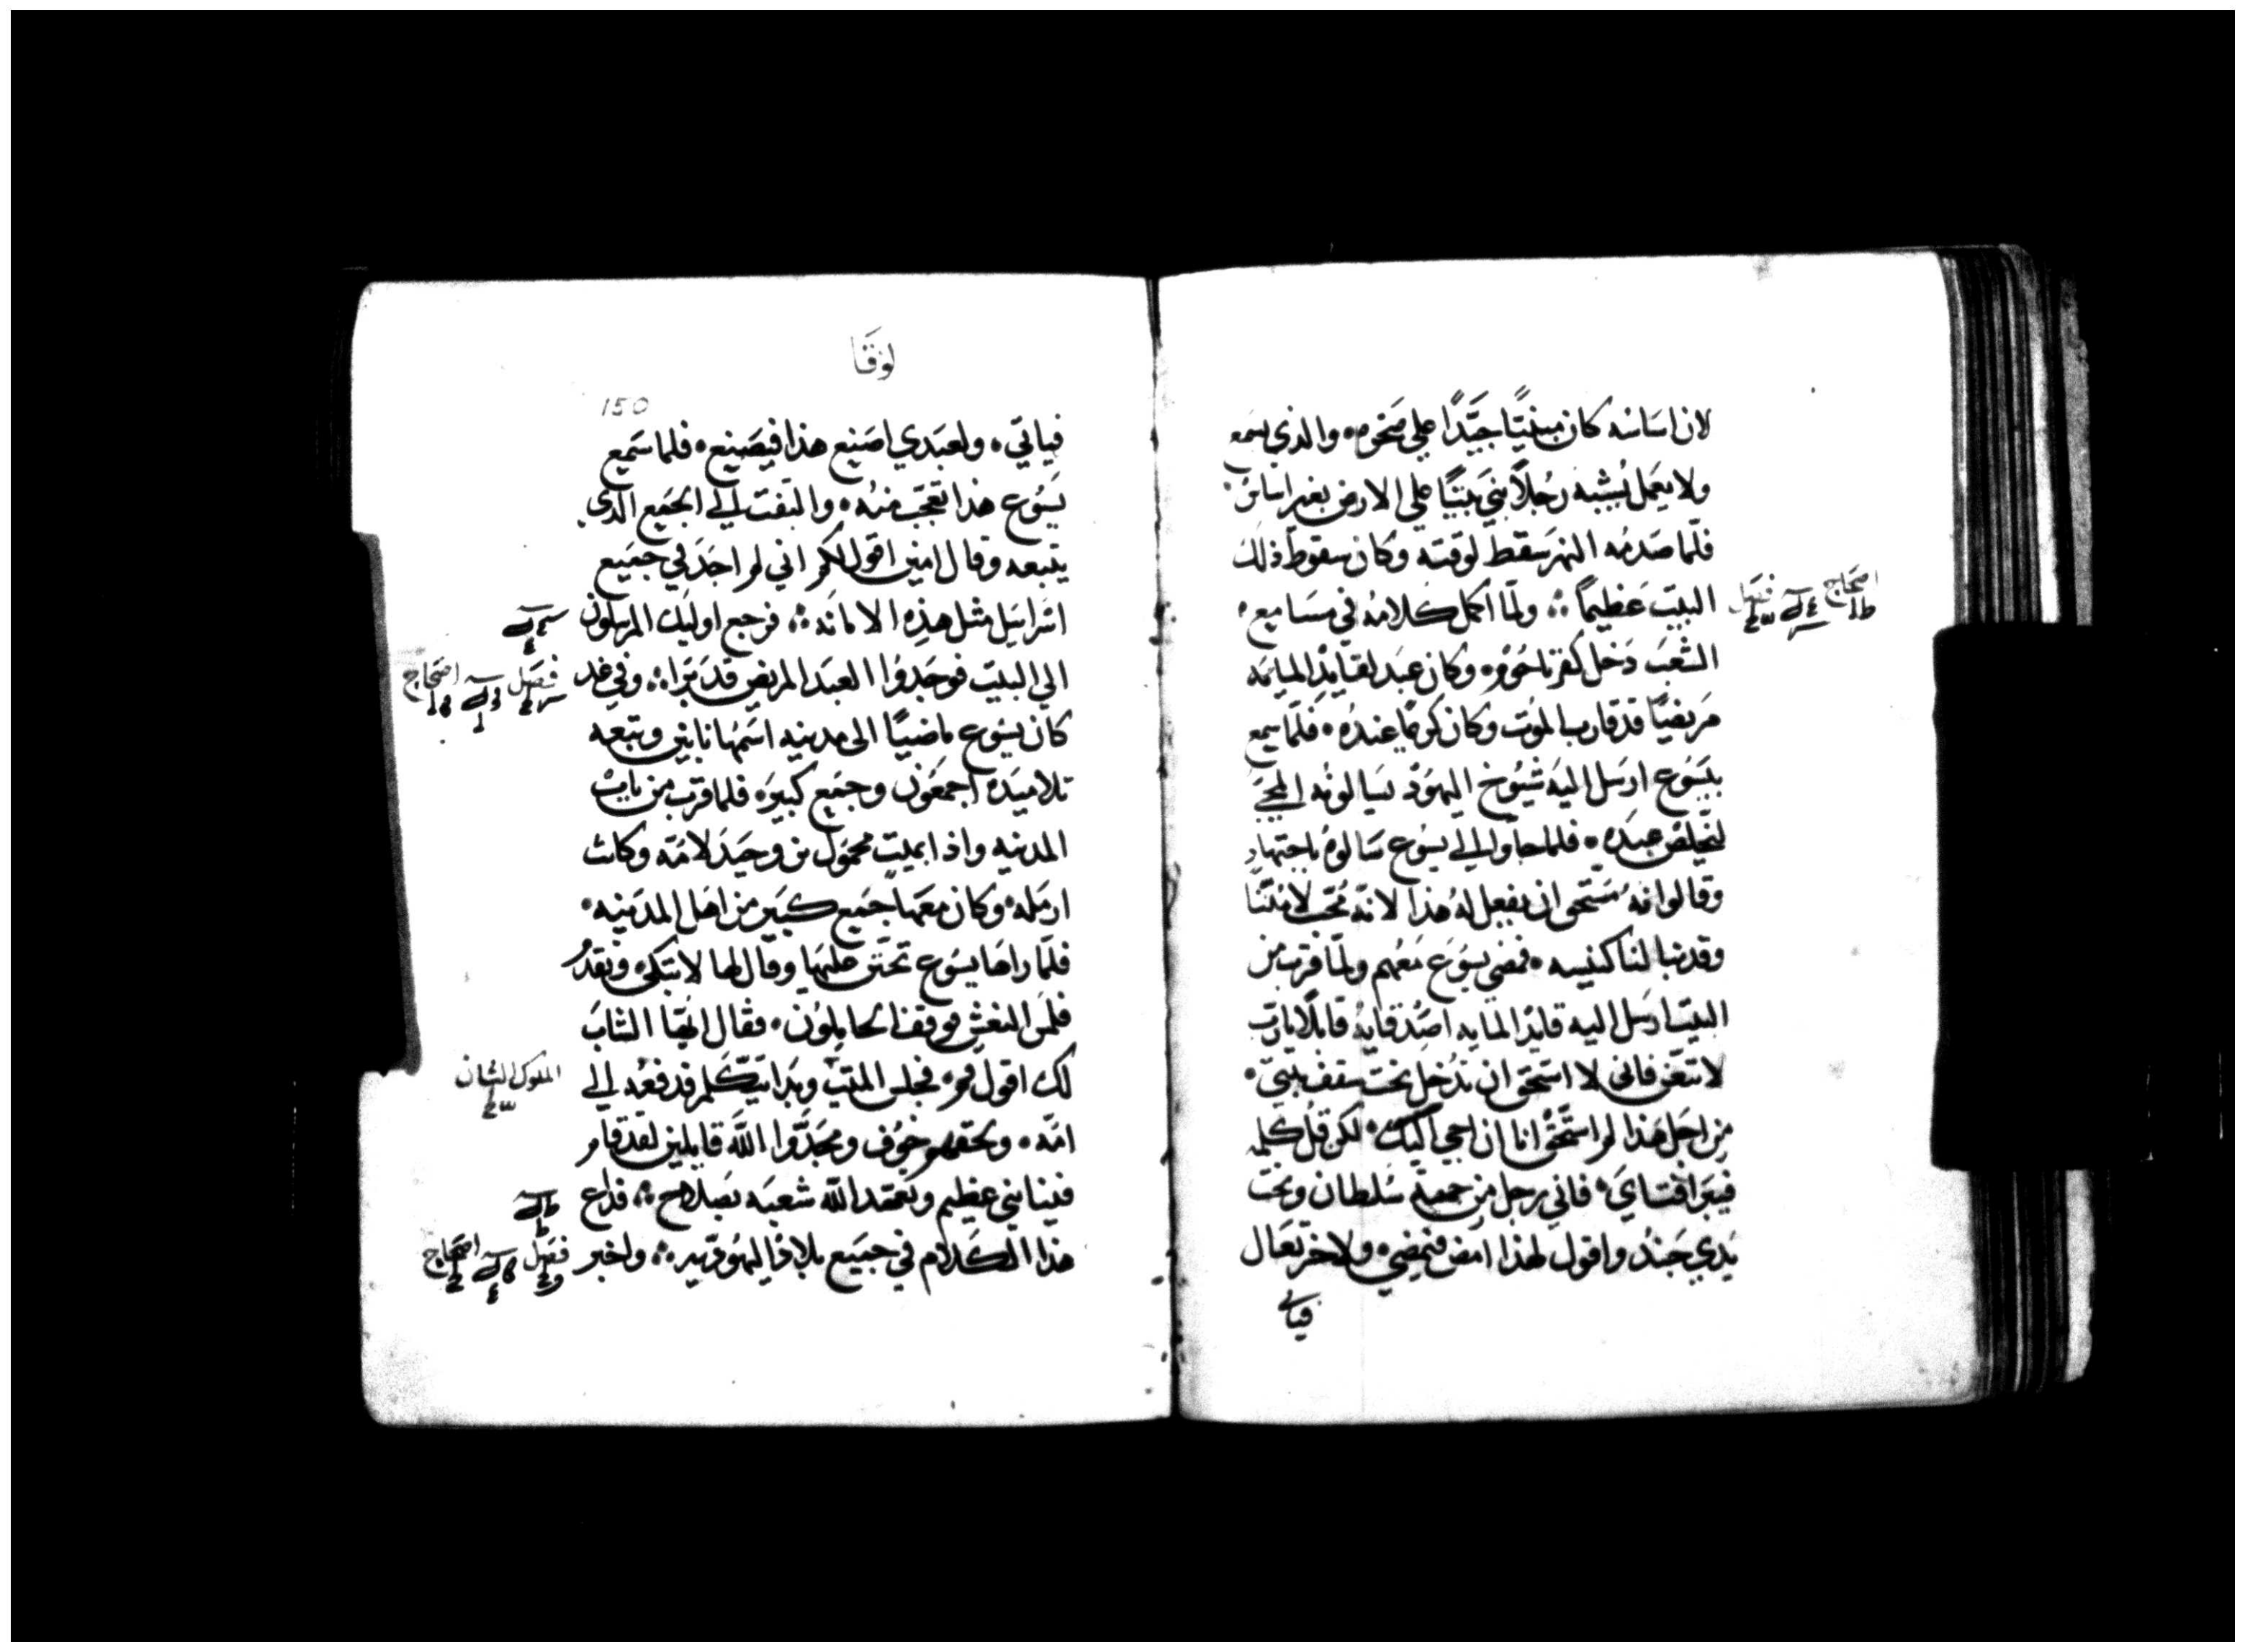 لان اساسه كان مبنيًّا جيَّدًا علي صخره، والذي يسمع
ولا يعمل يُشبه رجُلاً بني بيتًا علي الارض بغير اساس
فلمّا صَدمُه النهر سقط لوقته وكان سقوط ذلك
البيت عَظيمًا ؞ ولمّا اكمل كلامهُ في مسَامع
الشعب دَخل كفرناحوم، وكان عبد لقايد الميايه
مَريضيًا قد قارب الموت وكان كريمًا عنده، فلمّا سمع
بيَسُوع ارسَل اليه شيُوخ اليهود يسالونهُ المجئ
ليخلص عبده، فلما جاوا الي يسوع سَالوهُ باجتهادٍ
وقالوا انهُ مستحق ان يفعل لهُ هذا لانهُ مُحب لامتنا
وقد بنا لنا كنيسه، فمضي يسوع مَعهم ولمّا قرب من
البيت ارسل اليه قايد المايه اصدقايهُ قايلاً يارب
لا تتعن فاني لا استحق ان تدخل تحت سقف بيتي،
من اجل هذا لم استحق انا ان اجي اليك، لكن قل كلمه
فيبرا فتاي، فاني رجل من جهة سُلطان وتحت
يَدي جَندُ واقول لهذا امض فيمضي، ولاخر تعال
فياتي
اصحاح
فصل
لوقا
150
فياتي، ولعبَدي اصَنع هذا فيصَنع، فلما سَمع
يَسُوع هذا تعجّب منهُ، والتفت الي الجمَع الذي
يتبعه وقال امين اقول لكم اني لم اجَد في جميَع
اسَراسَل مثل هذِه الامانه ؞ فرجع اوليك المرسلون
الي البيت فوجَدوا العبَد المريض قد بَرا ؞ وفي غد
كان يسُوع ماضيًا الي مدينه اسَمها نايين وتبعه
تلاميَده اجمعَون وجمَع كبيره فلما قرب من باب
المدينه واذا بميت محمول بن وحيَد لامّه وكانت
ارمَله، وكان معَها جمَع كبَير من اهل المدَينه،
فلمّا راهَا يسُوع تحنّن عليهَا وقال لها لا تبَكي وتقدمُ
فلمس النعش فوقفنا الحاملون، فقال ايُها الشابُ
لك اقول قم، فجلس الميت وبَدا يتكلم فدفعُه الي
امّه، ولحقهم خوف ومجَدُّوا اللّٰه قايلين لقد قام
فينا نبي عظيم وتعَهد اللّٰه شعبَه بصَلاح ؞ فذاع
هذا الكلام في جميَع بلاد اليهوديه ؞ واخبر
فصَل
اصَحاح
الملوك الثان
فصَل
اصحاح